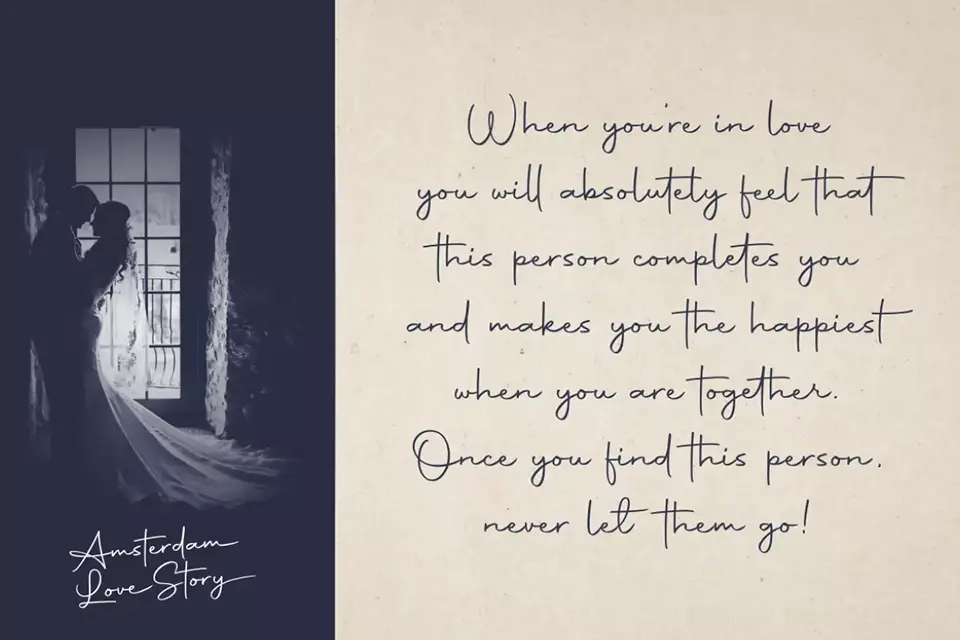 When you're in love
you will absolutely feel that
this person completes you
and makes you the happiest
when you are together.
Once you find this person.
never let them go!
Amsterdam
Love Story